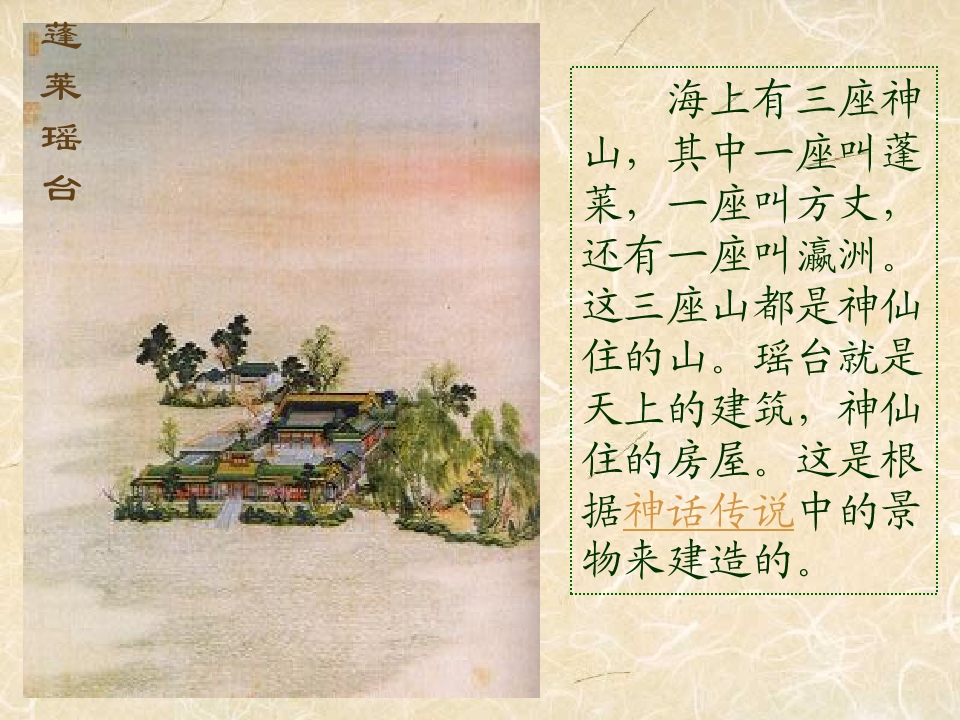 蓬莱瑶台
海上有三座神
山，其中一座叫蓬
莱，一座叫方丈，
还有一座叫瀛洲。
这三座山都是神仙
住的山。瑶台就是
天上的建筑，神仙
住的房屋。这是根
据神话传说中的景
物来建造的。